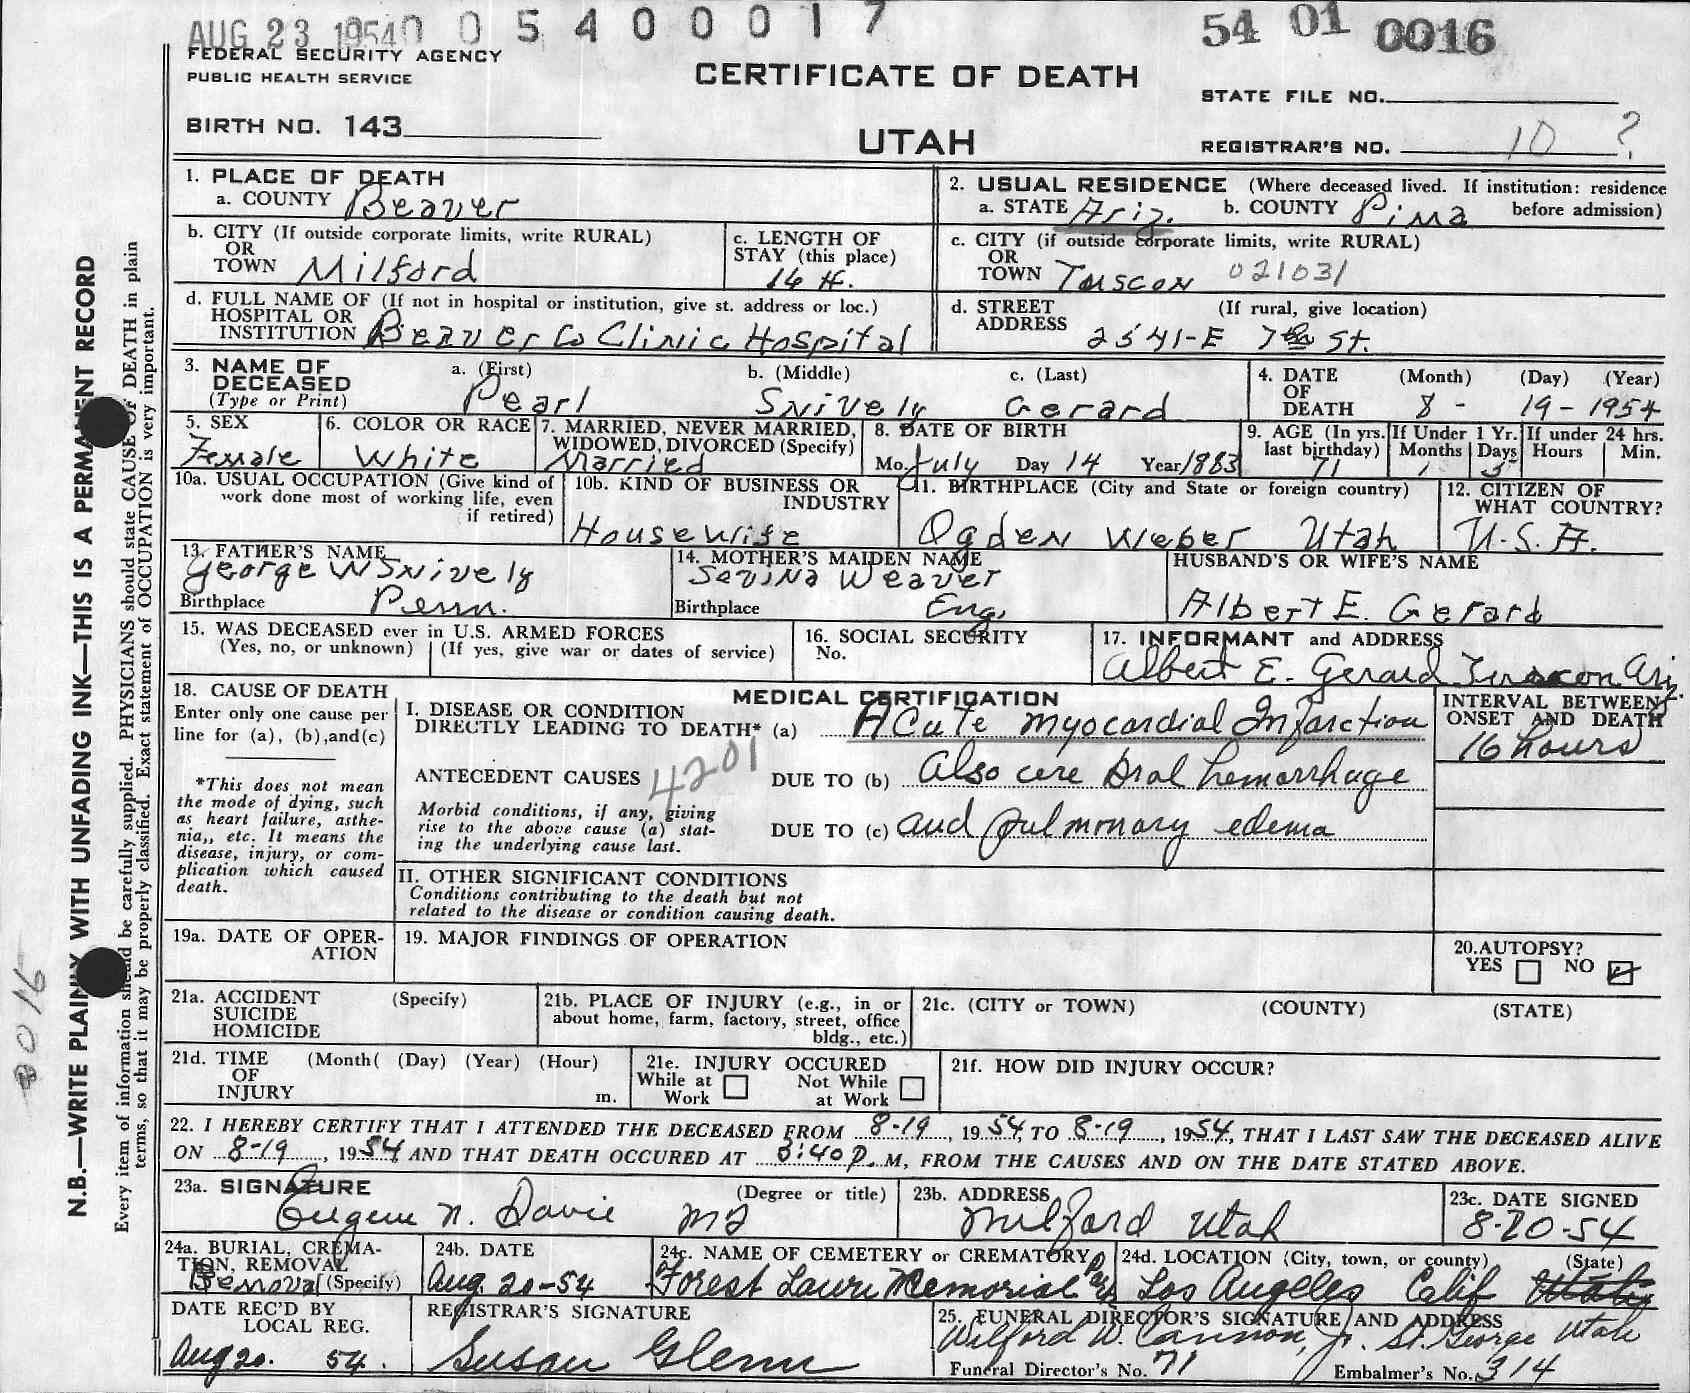 AUG 23 1954 0 0 5 4 0 0 0 1 7
54 01 0016
FEDERAL SECURITY AGENCY
PUBLIC HEALTH SERVICE
CERTIFICATE OF DEATH
STATE FILE NO.
BIRTH NO. 143
UTAH
REGISTRAR'S NO. 10 ?
1. PLACE OF DEATH
a. COUNTY Beaver
2. USUAL RESIDENCE (Where deceased lived. If institution: residence before admission)
a. STATE Ariz. b. COUNTY Pima
b. CITY (If outside corporate limits, write RURAL)
OR
TOWN Milford
c. LENGTH OF
STAY (this place)
16 H.
c. CITY (if outside corporate limits, write RURAL)
OR
TOWN Tuscon 021031
d. FULL NAME OF (If not in hospital or institution, give st. address or loc.)
HOSPITAL OR
INSTITUTION Beaver Co Clinic Hospital
d. STREET (If rural, give location)
ADDRESS 2541-E 7th St.
3. NAME OF
DECEASED
(Type or Print)
a. (First) b. (Middle) c. (Last)
Pearl Snively Gerard
4. DATE (Month) (Day) (Year)
OF
DEATH 8 - 19 - 1954
5. SEX
Female
6. COLOR OR RACE
White
7. MARRIED, NEVER MARRIED,
WIDOWED, DIVORCED (Specify)
Married
8. DATE OF BIRTH
Mo. July Day 14 Year 1883
9. AGE (In yrs.
last birthday)
71
If Under 1 Yr.
Months Days
1 5
If under 24 hrs.
Hours Min.
10a. USUAL OCCUPATION (Give kind of
work done most of working life, even
if retired)
10b. KIND OF BUSINESS OR
INDUSTRY
Housewife
11. BIRTHPLACE (City and State or foreign country)
Ogden Weber Utah
12. CITIZEN OF
WHAT COUNTRY?
U.S.A.
13. FATHER'S NAME
George W Snively
Birthplace Penn.
14. MOTHER'S MAIDEN NAME
Savina Weaver
Birthplace Eng.
HUSBAND'S OR WIFE'S NAME
Albert E. Gerard
15. WAS DECEASED ever in U.S. ARMED FORCES
(Yes, no, or unknown) (If yes, give war or dates of service)
16. SOCIAL SECURITY
No.
17. INFORMANT and ADDRESS
Albert E. Gerard Tuscon Ariz.
18. CAUSE OF DEATH
Enter only one cause per
line for (a), (b),and(c)
*This does not mean
the mode of dying, such
as heart failure, asthe-
nia,, etc. It means the
disease, injury, or com-
plication which caused
death.
MEDICAL CERTIFICATION
I. DISEASE OR CONDITION
DIRECTLY LEADING TO DEATH* (a) Acute myocardial Infarction
ANTECEDENT CAUSES 4201 DUE TO (b) Also cerebral hemorrhage
Morbid conditions, if any, giving
rise to the above cause (a) stat-
ing the underlying cause last.
DUE TO (c) and pulmonary edema
INTERVAL BETWEEN
ONSET AND DEATH
16 hours
II. OTHER SIGNIFICANT CONDITIONS
Conditions contributing to the death but not
related to the disease or condition causing death.
19a. DATE OF OPER-
ATION
19. MAJOR FINDINGS OF OPERATION
20. AUTOPSY?
YES NO
21a. ACCIDENT (Specify)
SUICIDE
HOMICIDE
21b. PLACE OF INJURY (e.g., in or
about home, farm, factory, street, office
bldg., etc.)
21c. (CITY or TOWN) (COUNTY) (STATE)
21d. TIME (Month( (Day) (Year) (Hour)
OF
INJURY m.
21e. INJURY OCCURED
While at Work
Not While at Work
21f. HOW DID INJURY OCCUR?
22. I HEREBY CERTIFY THAT I ATTENDED THE DECEASED FROM 8-19, 1954, TO 8-19, 1954, THAT I LAST SAW THE DECEASED ALIVE
ON 8-19, 1954, AND THAT DEATH OCCURED AT 8:40 P. M, FROM THE CAUSES AND ON THE DATE STATED ABOVE.
23a. SIGNATURE (Degree or title)
Eugene N. Davie MD
23b. ADDRESS
Milford Utah
23c. DATE SIGNED
8-20-54
24a. BURIAL, CREMA-
TION, REMOVAL
Removal (Specify)
24b. DATE
Aug. 20-54
24c. NAME OF CEMETERY or CREMATORY
Forest Lawn Memorial Pk
24d. LOCATION (City, town, or county) (State)
Los Angeles Calif Utah
DATE REC'D BY
LOCAL REG.
Aug 20. 54.
REGISTRAR'S SIGNATURE
Susan Glenn
25. FUNERAL DIRECTOR'S SIGNATURE AND ADDRESS
Wilford W. Cannon, Jr. St. George Utah
Funeral Director's No. 71 Embalmer's No. 314
N.B.—WRITE PLAINLY WITH UNFADING INK—THIS IS A PERMANENT RECORD
Every item of information should be carefully supplied. PHYSICIANS should state CAUSE OF DEATH in plain
terms, so that it may be properly classified. Exact statement of OCCUPATION is very important.
8016